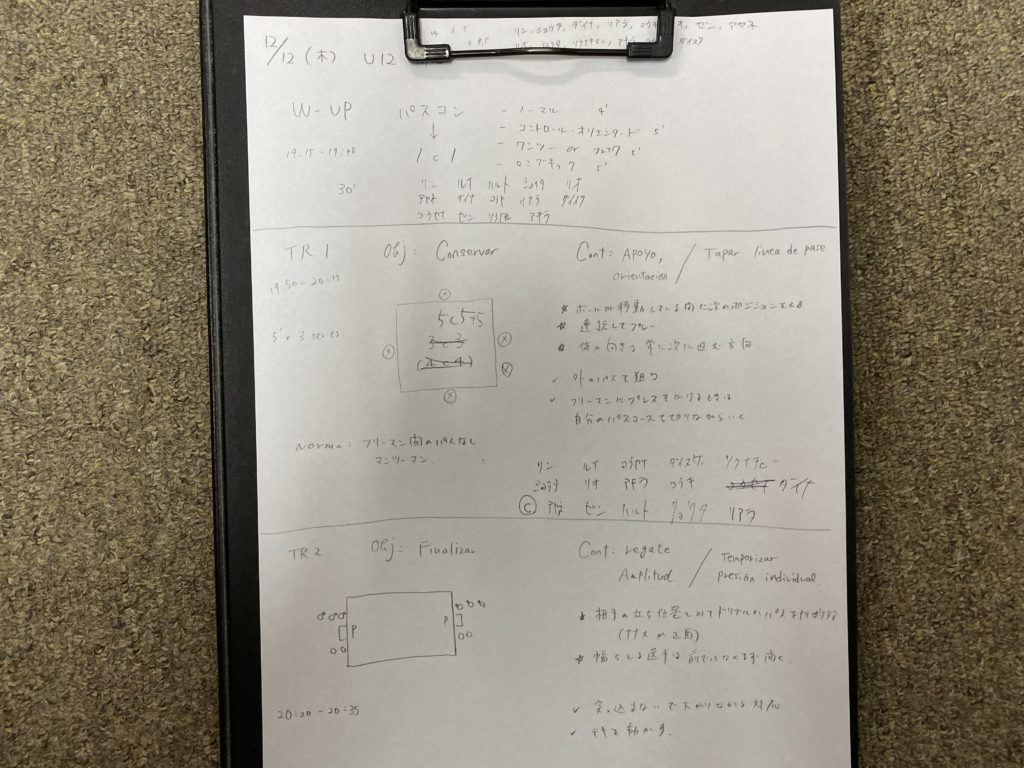 リン, ショウタ, ダイナ, リアラ, コウキ, オ, ゼン, アヤネ
12/12 (木) U12
W-UP パスコン - ノーマル 4'
↓ - コントロール・オリエンタード 5'
/ c / - ワンツー or フェイク 5'
- ロングキック 5'
19:15-19:45
30' リン ルイ ハルト ショウタ リオ
アヤネ ダイナ コウキ リアラ ダイスケ
コウセイ ゼン アキラ
TR 1 Obj: Conservar Cont: APOYO, / Tapar línea de pase.
orientación
19:50-20:15
5' x 3 series.
5c5+5
3c3
(4c4)
★ ボールが移動している間に次のポジションをとる
★ 連続してプレー
★ 体の向きは常に次に進む方向
✓ 外のパスを狙う
✓ フリーマンにプレスをかけるときは
自分のパスコースを切りながらいく
Norma: フリーマン間のパスなし
マンツーマン
リン ルイ コウセイ ダイスケ
ショウタ リオ アキラ コウキ コウセイ ダイナ
Ⓒ アヤネ ゼン ハルト リョウタ リアラ
TR 2 Obj: Finalizar Cont: regate / Temporizar
Amplitud presión individual
P P
★ 相手の立ち位置をみてドリブルかパスを
(ナナメか正面)
★ 幅をとる選手は
20:20-20:35
✓ 突っ込まないで下がりながら対応
✓ を動かす.